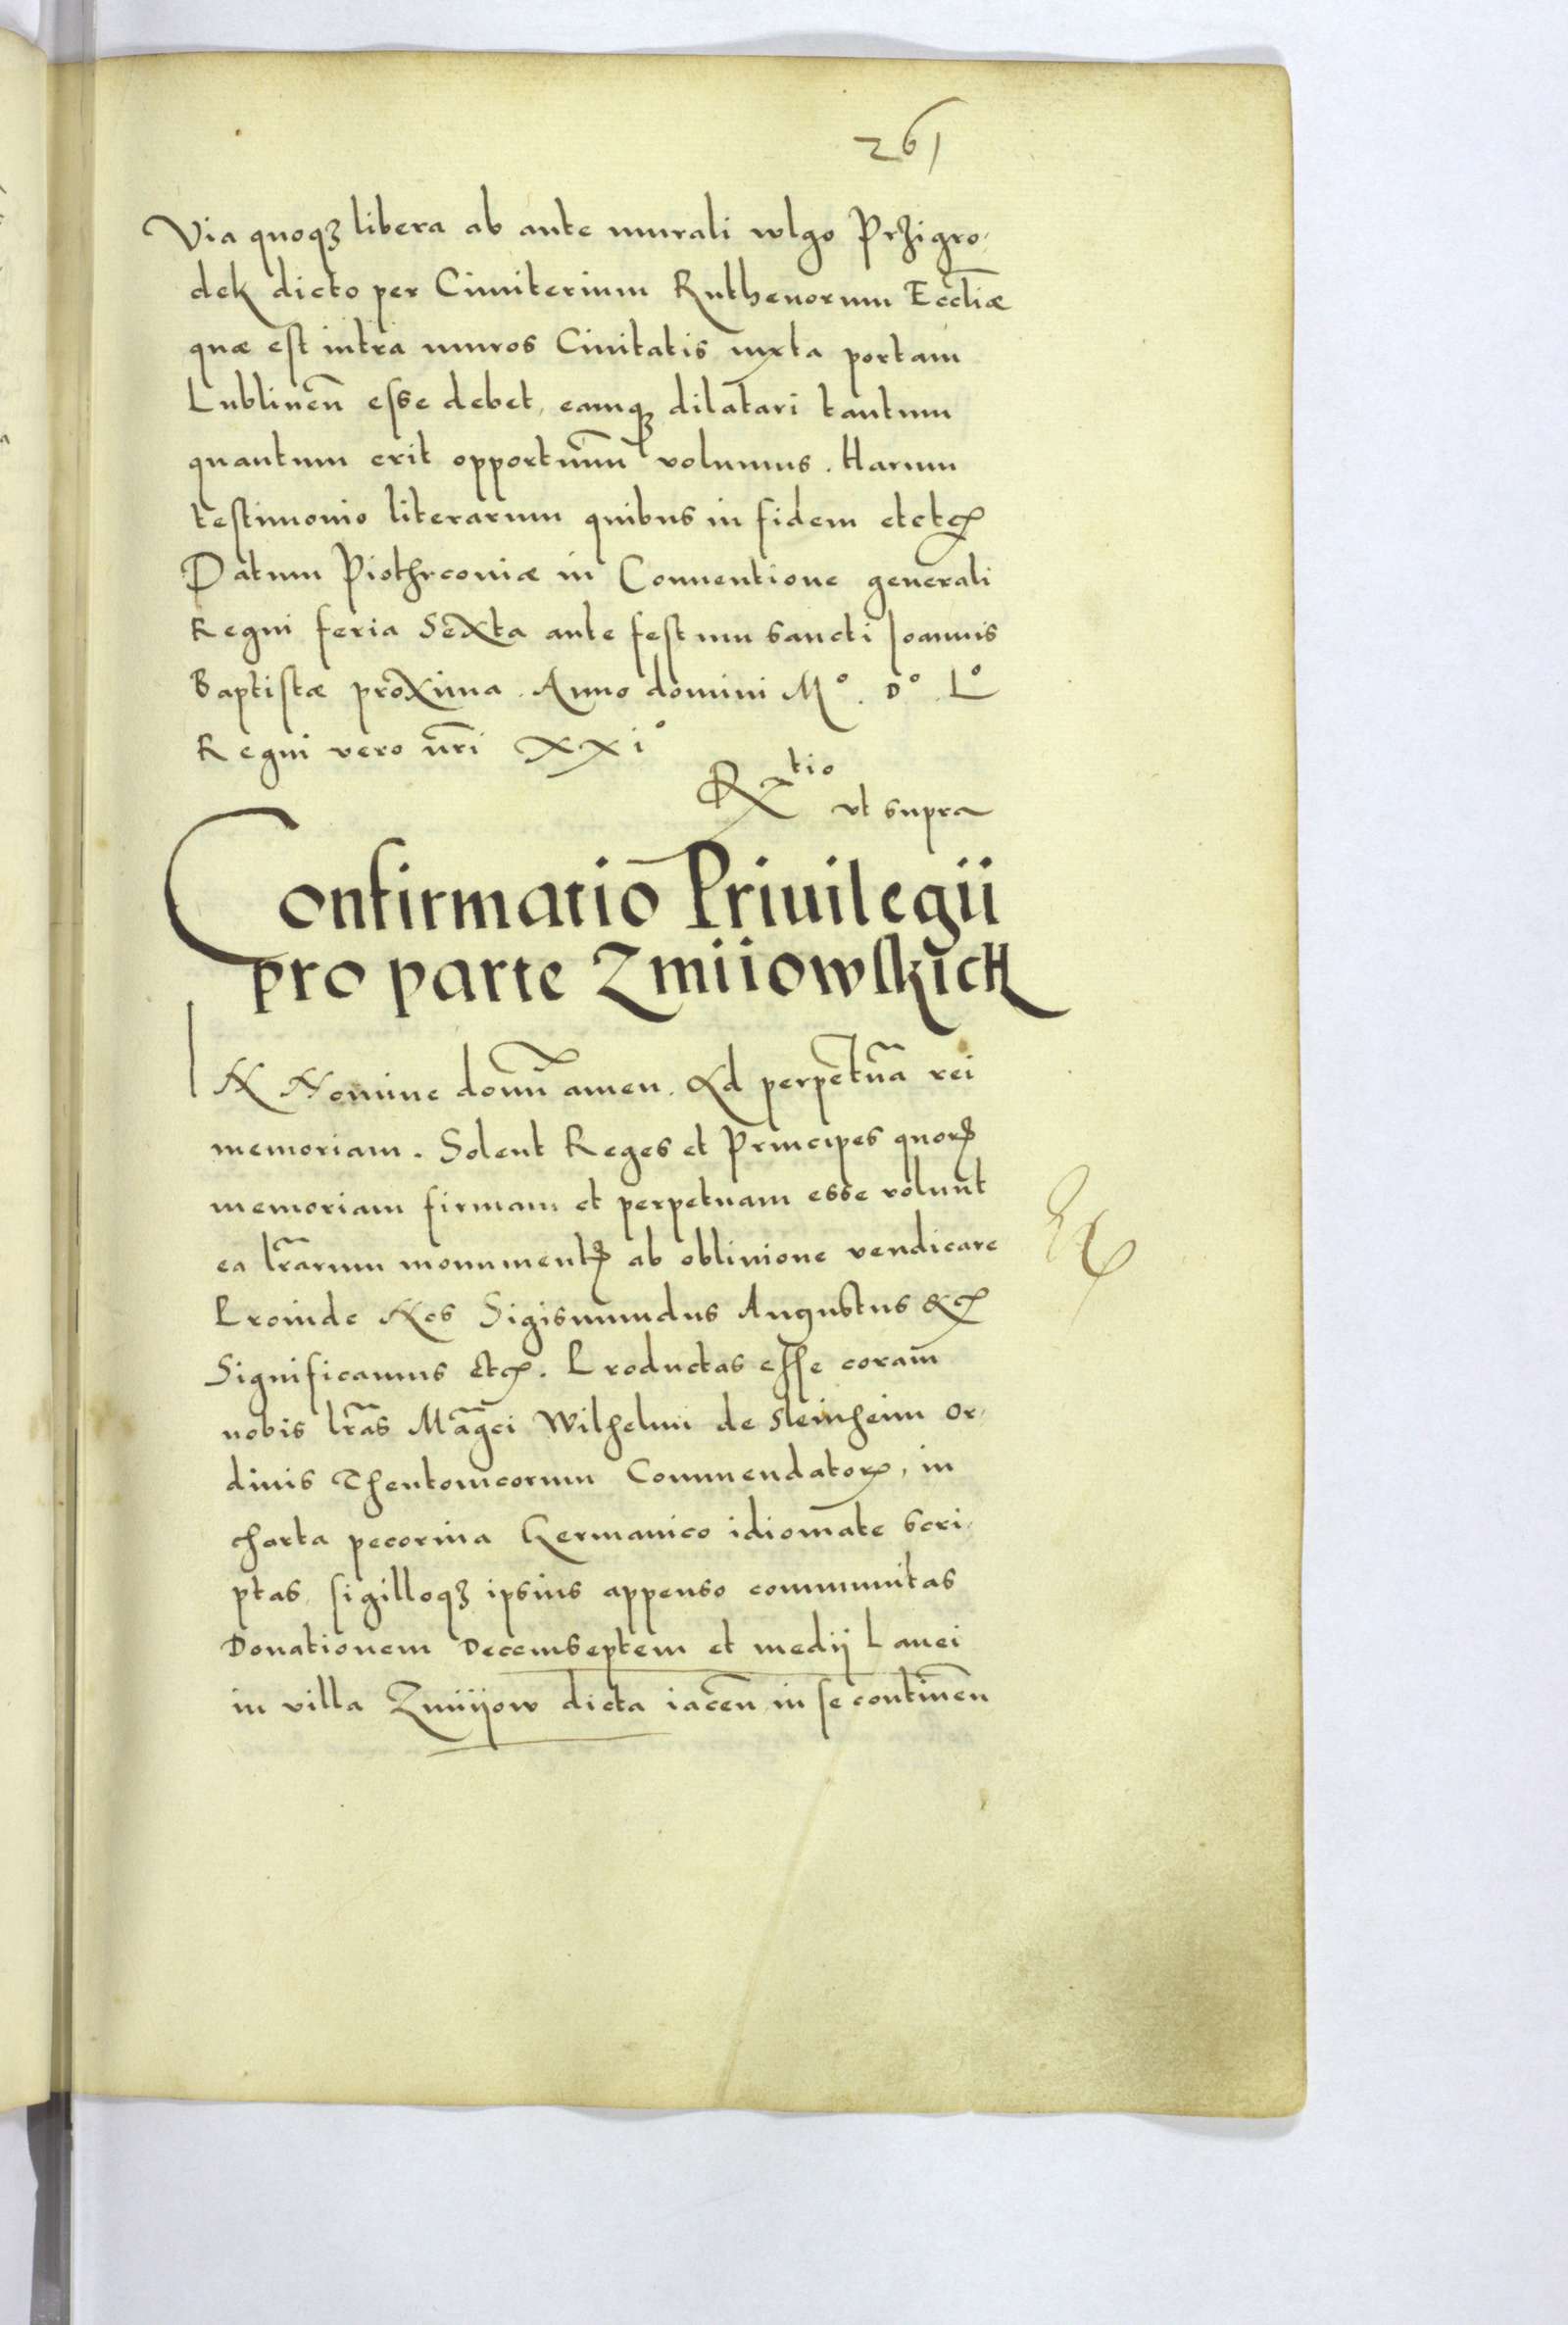 261
Via quoqꝫ libera ab ante murali wlgo Przigro-
dek dicto per Cimiterium Ruthenorum Eccl̄iæ
quæ est intra muros Ciuitatis iuxta portam
Lublinen̄ esse debet, eamqꝫ dilatari tantum
quantum erit opportunū volumus. Harum
testimonio literarum quibus in fidem etcꝭ
Datum Piothrcouiæ in Conuentione generali
Regni feria Sexta ante festum sancti Joannis
Baptistæ proxima. Anno domini M° . D° . L°
Regni vero nr̄i XXi°
Rtio
vt supra
Confirmatio Priuilegii
pro parte Zmiiowskich
IN Nomine domī amen. Ad perpetuā rei
memoriam. Solent Reges et Principes quorꝭ
memoriam firmam et perpetuam esse volunt
ea lr̄arum monumentꝭ ab obliuione vendicare
Proinde Nos Sigismundus Augustus &cꝭ
Significamus etcꝭ. Productas esse coram
nobis lr̄as Maḡci Wilhelmi de Steinheim or-
dinis Theutonicorum Commendatorꝭ, in
charta pecorina Germanico idiomate scri-
ptas, sigilloqꝫ ipsius appenso communitas
Donationem Decemseptem et medij Lanei
in villa Zmiijow dicta iacen̄ in se continen̄